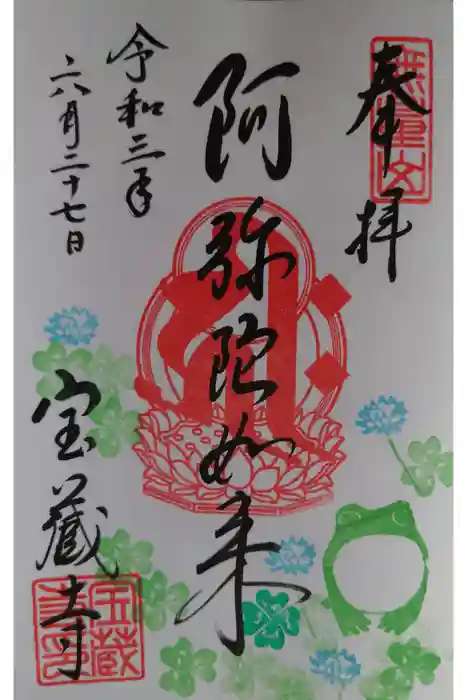 奉拝
阿弥陀如来
令和三年
六月二十七日
宝蔵寺